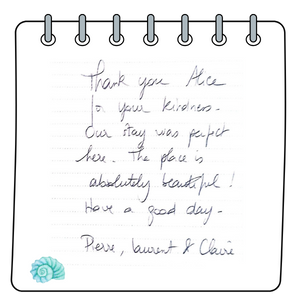 Thank you Alice
for your kindness.
Our stay was perfect
here. The place is
absolutely beautiful !
Have a good day.
Pierre, Laurent & Claire